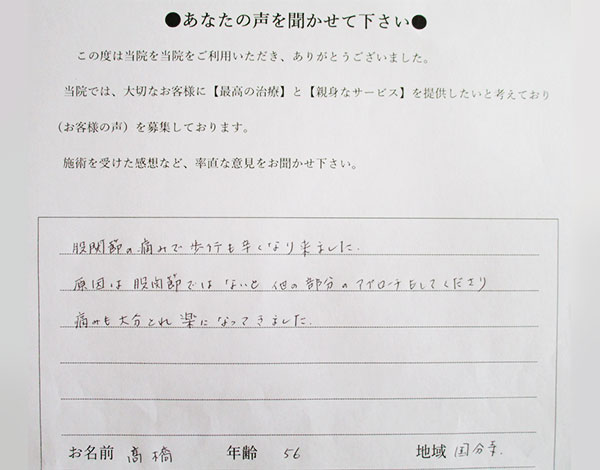 ●あなたの声を聞かせて下さい●
この度は当院を当院をご利用いただき、ありがとうございました。
当院では、大切なお客様に【最高の治療】と【親身なサービス】を提供したいと考えており
（お客様の声）を募集しております。
施術を受けた感想など、率直な意見をお聞かせ下さい。
股関節の痛みで歩行も辛くなり来ました。
原因は股関節ではないと他の部分のアプローチをしてくださり
痛みも大分とれ楽になってきました。
お名前 高橋 年齢 56 地域 国分寺.